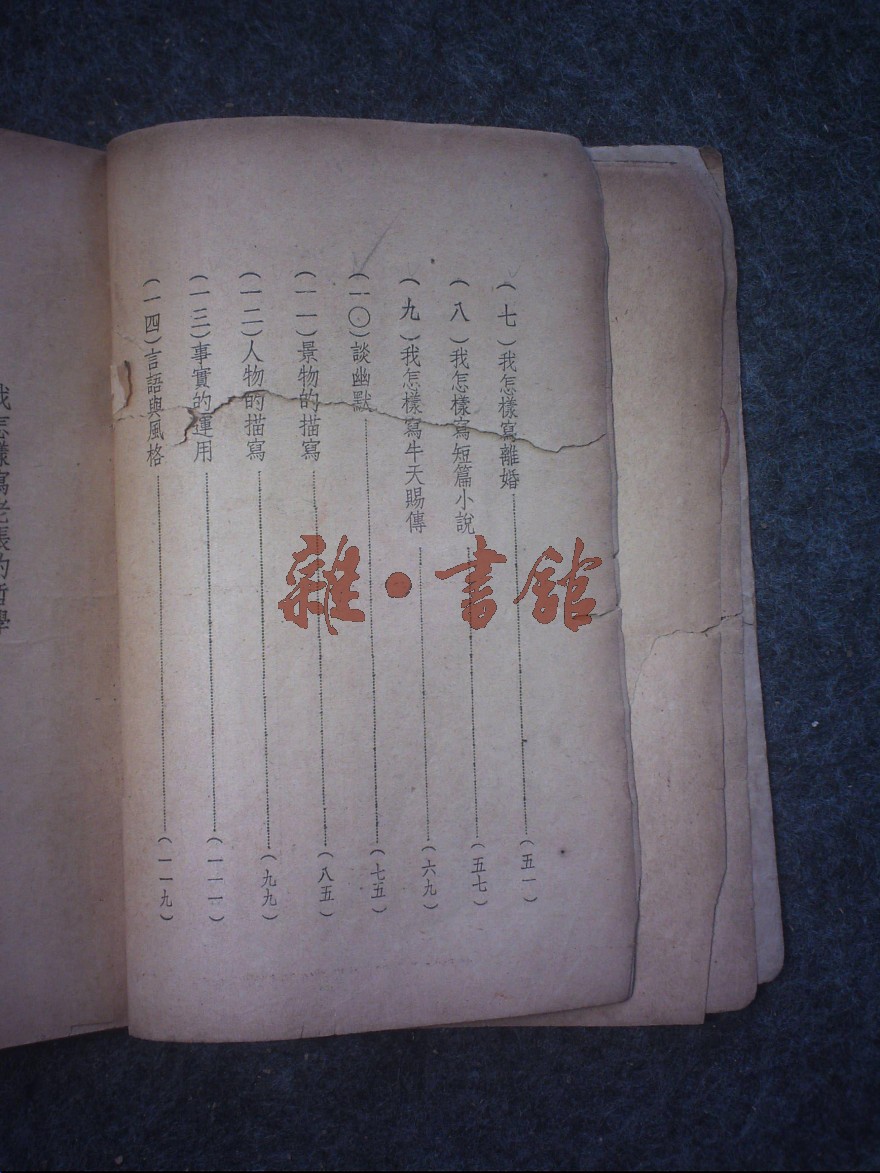 (七)我怎樣寫離婚……(五一)
(八)我怎樣寫短篇小說……(五七)
(九)我怎樣寫牛天賜傳……(六九)
(一〇)談幽默……(七五)
(一一)景物的描寫……(八五)
(一二)人物的描寫……(九九)
(一三)事實的運用……(一一一)
(一四)言語與風格……(一一九)
我怎樣寫老張的哲學
雜·書館